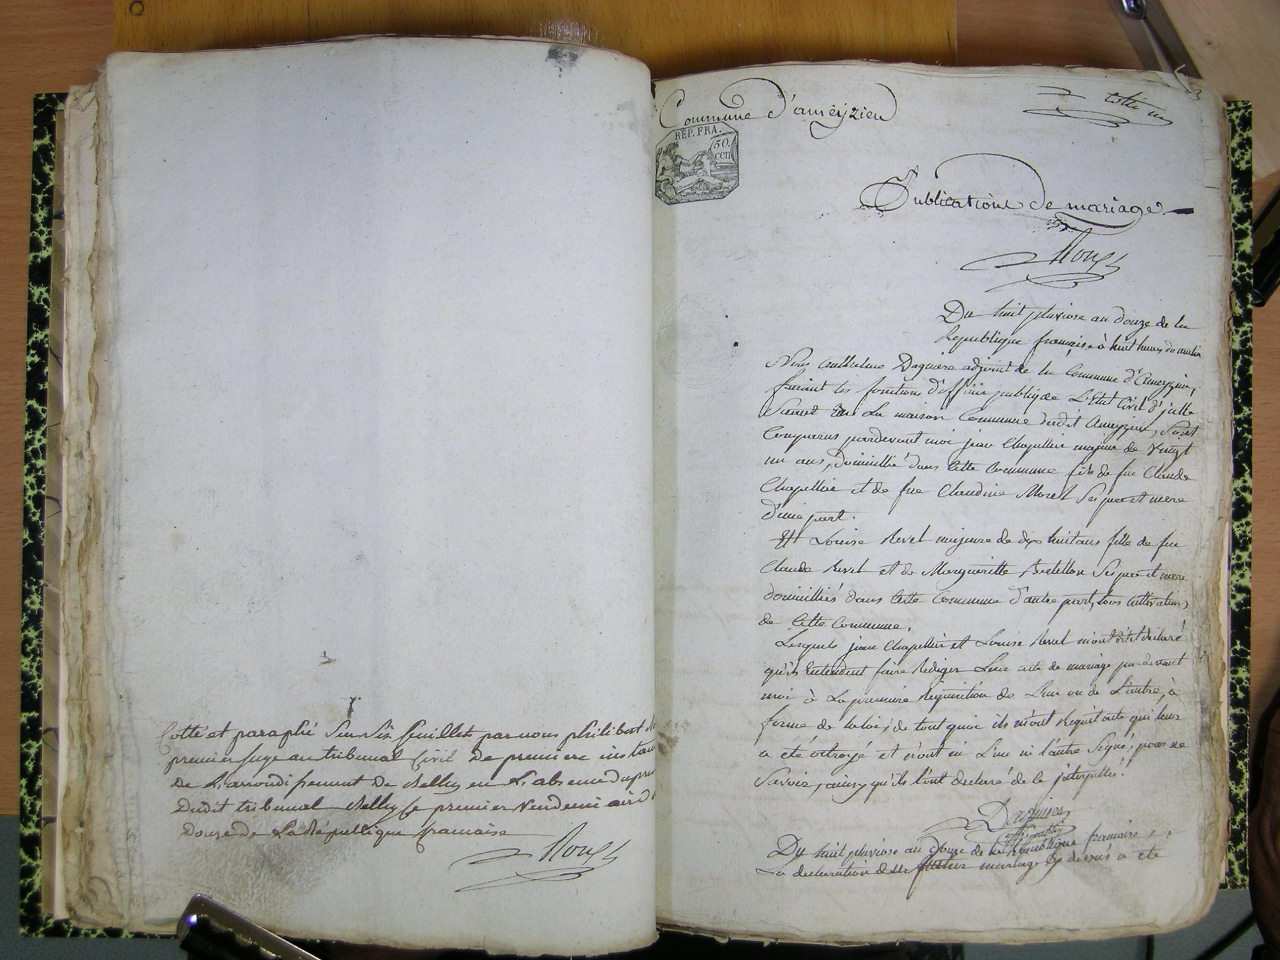 Cotté et paraphé Sur Six feuillet par nous philibert
premier juge au tribunal Civil de premiere instance
De L'arrondissement de Belley en L'absence du
Dudit tribunal Belley le premier Vendemiaire
Douze de La République francaise
Commune d'ameyzieu
REP. FRA.
50
cen
cotte un
Publications de mariage
Du huit pluviose an douze de la
Republique francaise à huit heures du matin
Nous Anthelme Dagueret adjoint de la Commune d'Ameyzieu,
faisant les fonctions d'officie publiq de L'Etat Civil d'jcelle
La maison Commune dudit Ameyzieu, Sont
Comparus pardevant moi jean Chapellier majeur de Vingt
un ans, Domicillié dans Cette Commune fils de feu Claude
Chapellier et de feue Claudine Moret Ses pere et mere
d'une part.
Et Louise Revet majeure de dix huit ans fille de feu
Claude Revet et de Margueritte Ses pere et mere
domicilliés dans Cette Commune d'autre part, tous Cultivateurs
de Cette Commune.
Lesquels jean Chapellier et Louise Revet m'ont dit et déclaré
qu'ils Entendent faire Rediger Leur acte de mariage par devant
moi à La premiere Requisition de L'un ou de L'autre, à
forme de la loi, de tout quoi ils m'ont Requit acte qui leur
a été octroyé et n'ont ni L'un ni l'autre Signé, pour ne
Savoir, ainsy qu'ils l'ont declaré de ce jnterpellés.
Du huit pluviose an douze de la Republique francaise
La declaration de futur mariage cy dessus a été